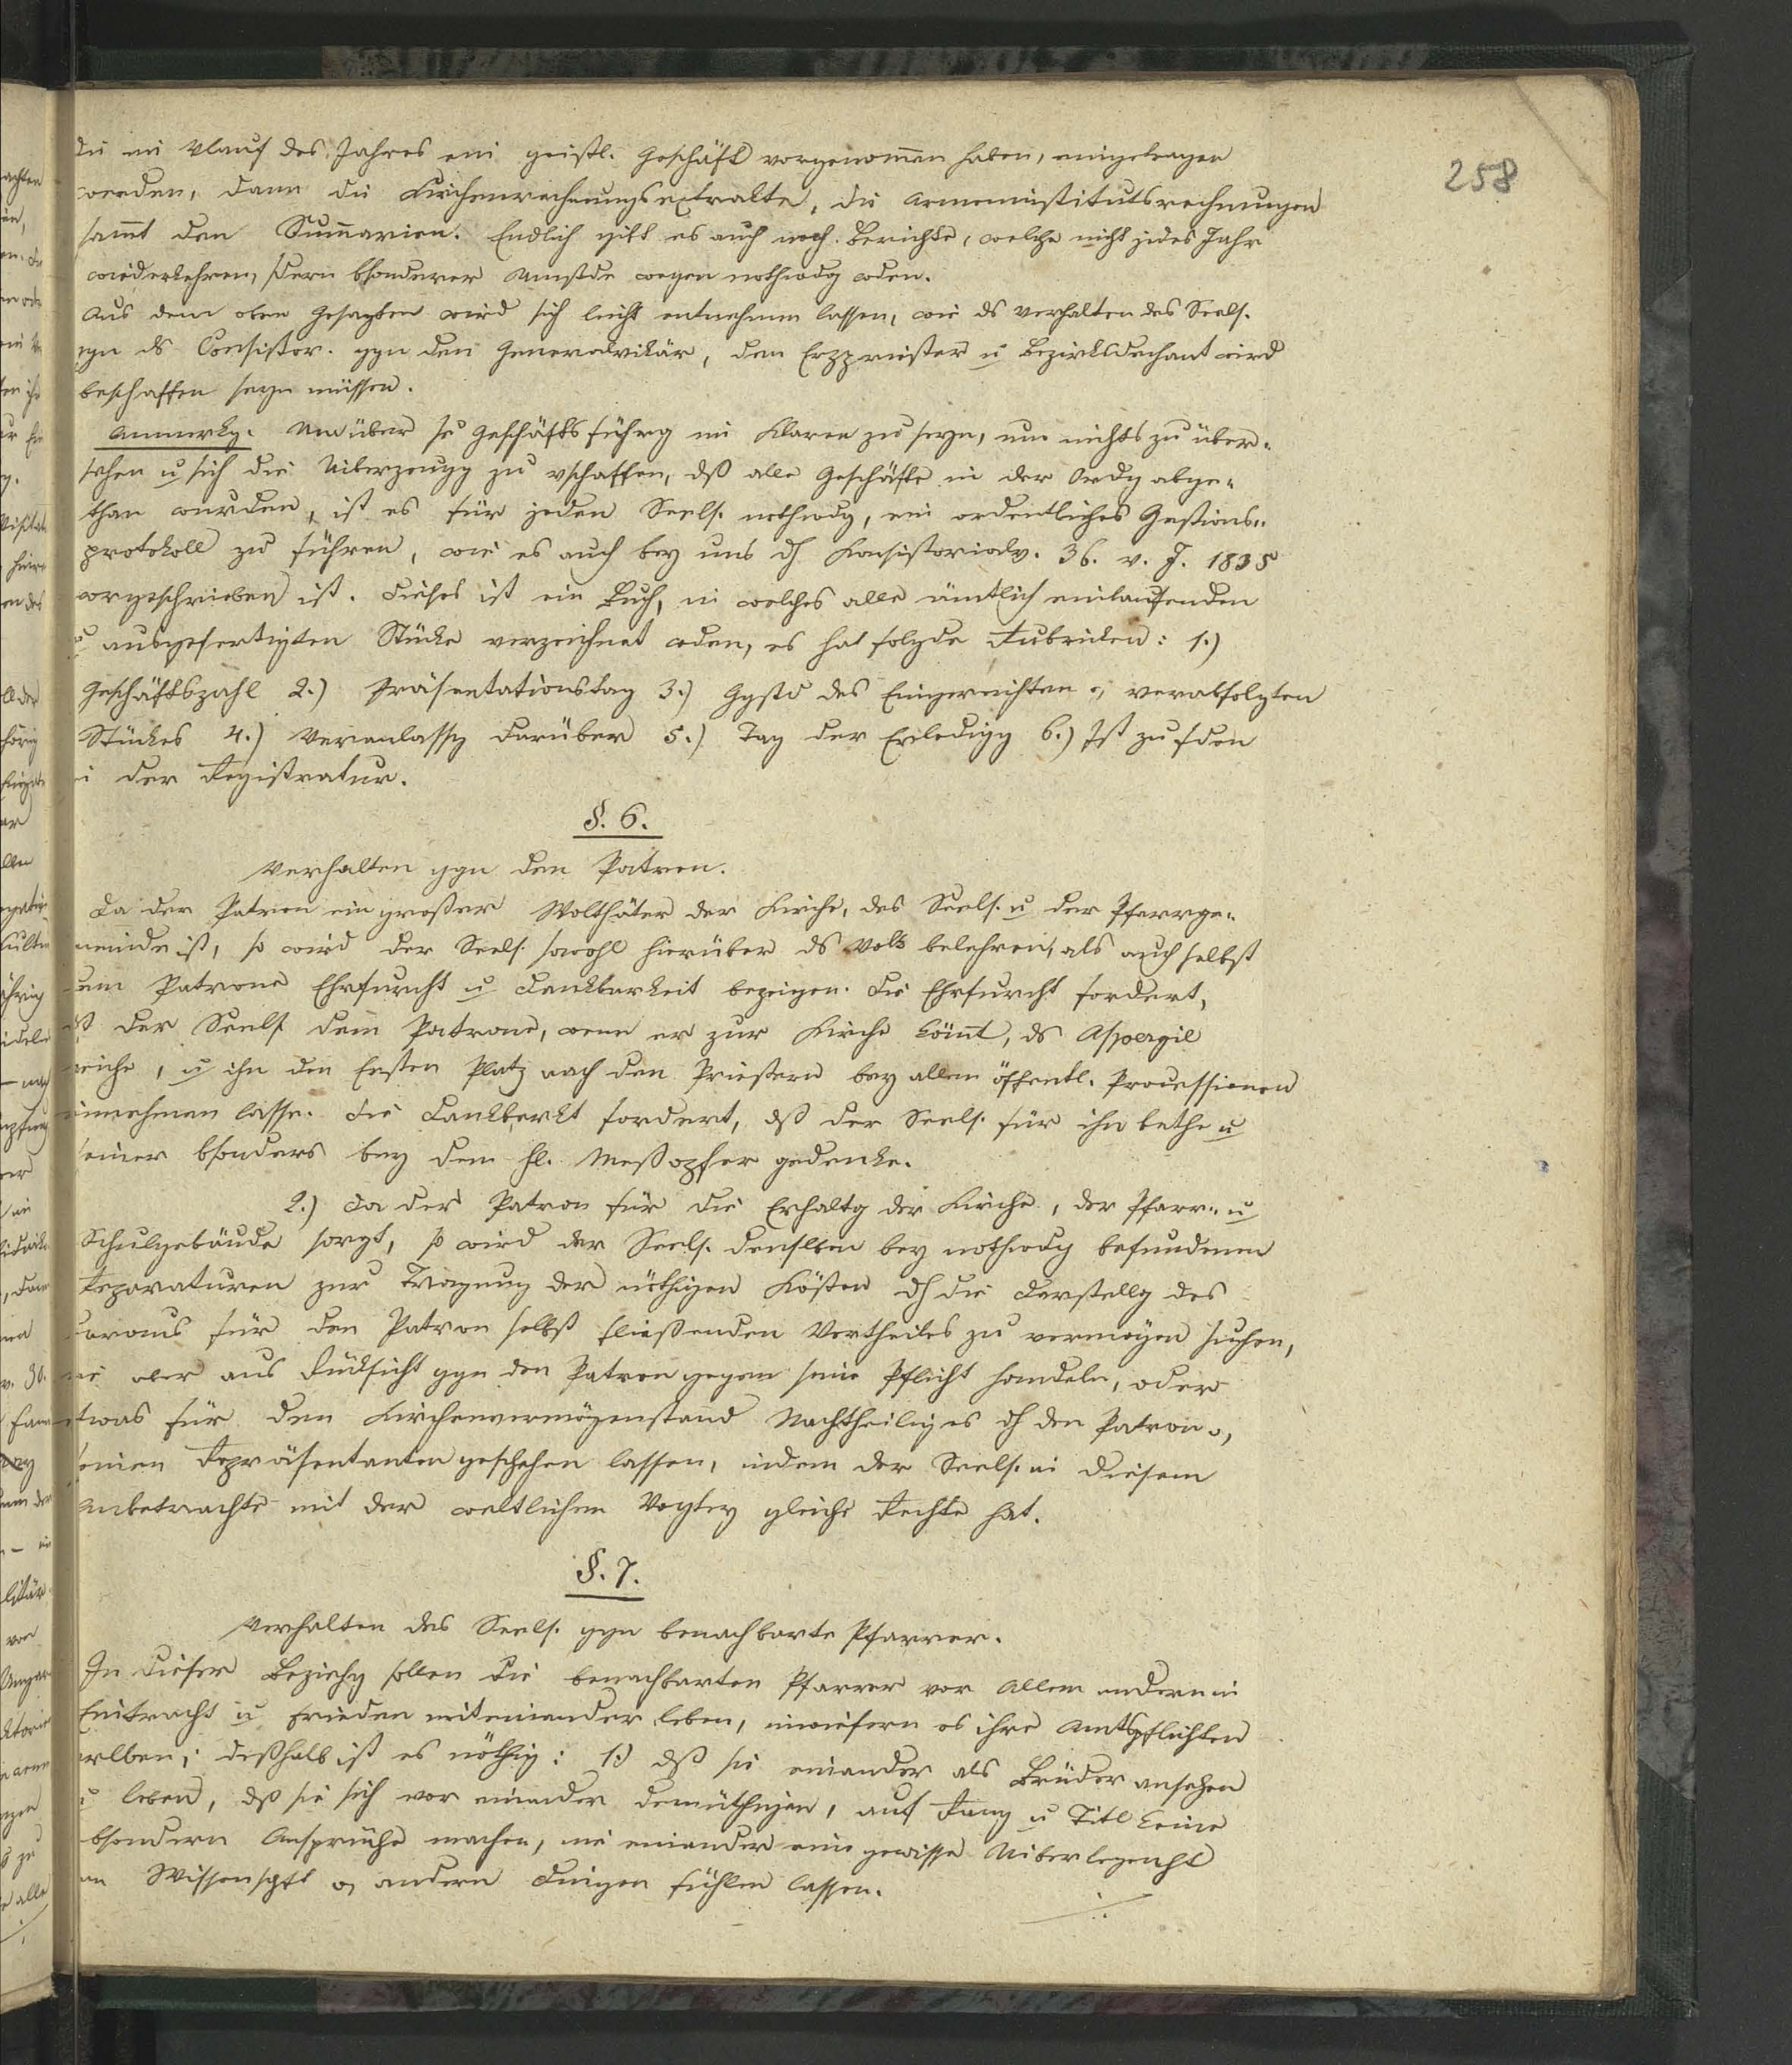 258
die im Vlauf des Jahres ein geistl. Geschäft vorgenommen haben, eingetragen
werden, dann die Kirchenrechnungsextrakte, die Armeninstitutsrechnungen
sammt den Summarien. Endlich gibt es auch noch Berichte, welche nicht jedes Jahr
wiederkehren, sdern bsonderer Umstde wegen nothwdg wden.
Aus dem oben Gesagten wird sich leicht entnehmen lassen, wie ds Verhalten des Seels.
ggn ds Consistor. ggn den Generalvikär, den Erzpriester u Bezirksdechant wird
beschaffen seyn müssen.
Anmerkg. Um über se Geschäftsführg im Klaren zu seyn, um nichts zu über-
sehen u sich die Uiberzeugg zu vschaffen, dß alle Geschäfte in der Ordg abge-
than wurden, ist es für jeden Seels. nothwdg, ein ordentliches Gestions-
protokoll zu führen, wie es auch bey uns dh Konsistorialv. 36. v. J. 1835
vorgeschrieben ist. Dieses ist ein Buch, in welches alle ämtlich einlaufenden
u ausgefertigten Stücke verzeichnet wden, es hat folgde Rubricken: 1.)
Geschäftszahl 2.) Präsentationstag 3.) Ggstd des Eingereichten o, verabfolgten
Stückes 4.) Veranlassg darüber 5.) Tag der Erledigg 6.) Ist zu fden
in der Registratur.
§. 6.
Verhalten ggn den Patron.
Da der Patron ein großer Wolthäter der Kirche, des Seels. u der Pfarrge-
meinde ist, so wird der Seels. sowohl hierüber ds Volk belehren, als auch selbst
dem Patrone Ehrfurcht u Dankbarkeit bezeigen. Die Ehrfurcht fordert,
dß der Seels. dem Patrone, wenn er zur Kirche kömt, ds Aspergil
reiche, u ihn den Ersten Platz nach den Priestern bey allen öffentl. Processionen
einnehmen lasse. Die Dankbarkt fordert, dß der Seels. für ihn bethe u
seiner bsonders bey dem hl. Meßopfer gedenke.
2.) Da der Patron für die Erhaltg der Kirche, der Pfarr- u
Schulgebäude sorgt, so wird der Seels. denslben bey nothwdg befundenen
Reparaturen zur Tragung der nöthigen Kösten dh die Darstellg des
daraus für den Patron selbst fließenden Vortheiles zu vermögen suchen,
nie aber aus Rücksicht ggn den Patron gegen seine Pflicht handeln, oder
etwas für den Kirchenvermögenstand Nachtheiliges dh den Patron o,
seinen Repräsentanten geschehen lassen, indem der Seels. in diesem
Anbetrachte mit der weltlichen Vogtey gleiche Rechte hat.
§. 7.
Verhalten des Seels. ggn benachbarte Pfarrer.
In dieser Beziehg sollen die benachbarten Pfarrer vor Allem andern in
Eintracht u Frieden miteinander leben, inwiefern es ihre Amtspflichten
erlben; deßhalb ist es nöthig: 1.) dß sie einander als Brüder ansehen
u leben, dß sie sich vor einander demüthigen, auf Rang u Titl keine
bsondern Ansprüche machen, nie einander eine gewisse Uiberlegenht
an Wissenschft o, andern Dingen fühlen lassen.